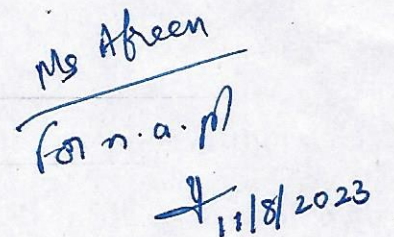 Ms Afreen
For n.a. pl
11/8/2023